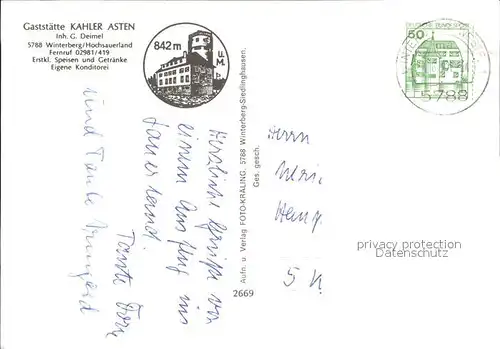 Gaststätte KAHLER ASTEN
Inh. G. Deimel
5788 Winterberg/Hochsauerland
Fernruf 02981/419
Erstkl. Speisen und Getränke
Eigene Konditorei
842 m ü. M.
DEUTSCHE BUNDESPOST
50
5788
Herzliche Grüße von
einem Ausflug ins
Sauerland
Tante
und Tante Irmgard
Aufn. u. Verlag FOTO-KRALING, 5788 Winterberg-Siedlinghausen,
Ges. gesch.
2669
Herrn
privacy protection
Datenschutz